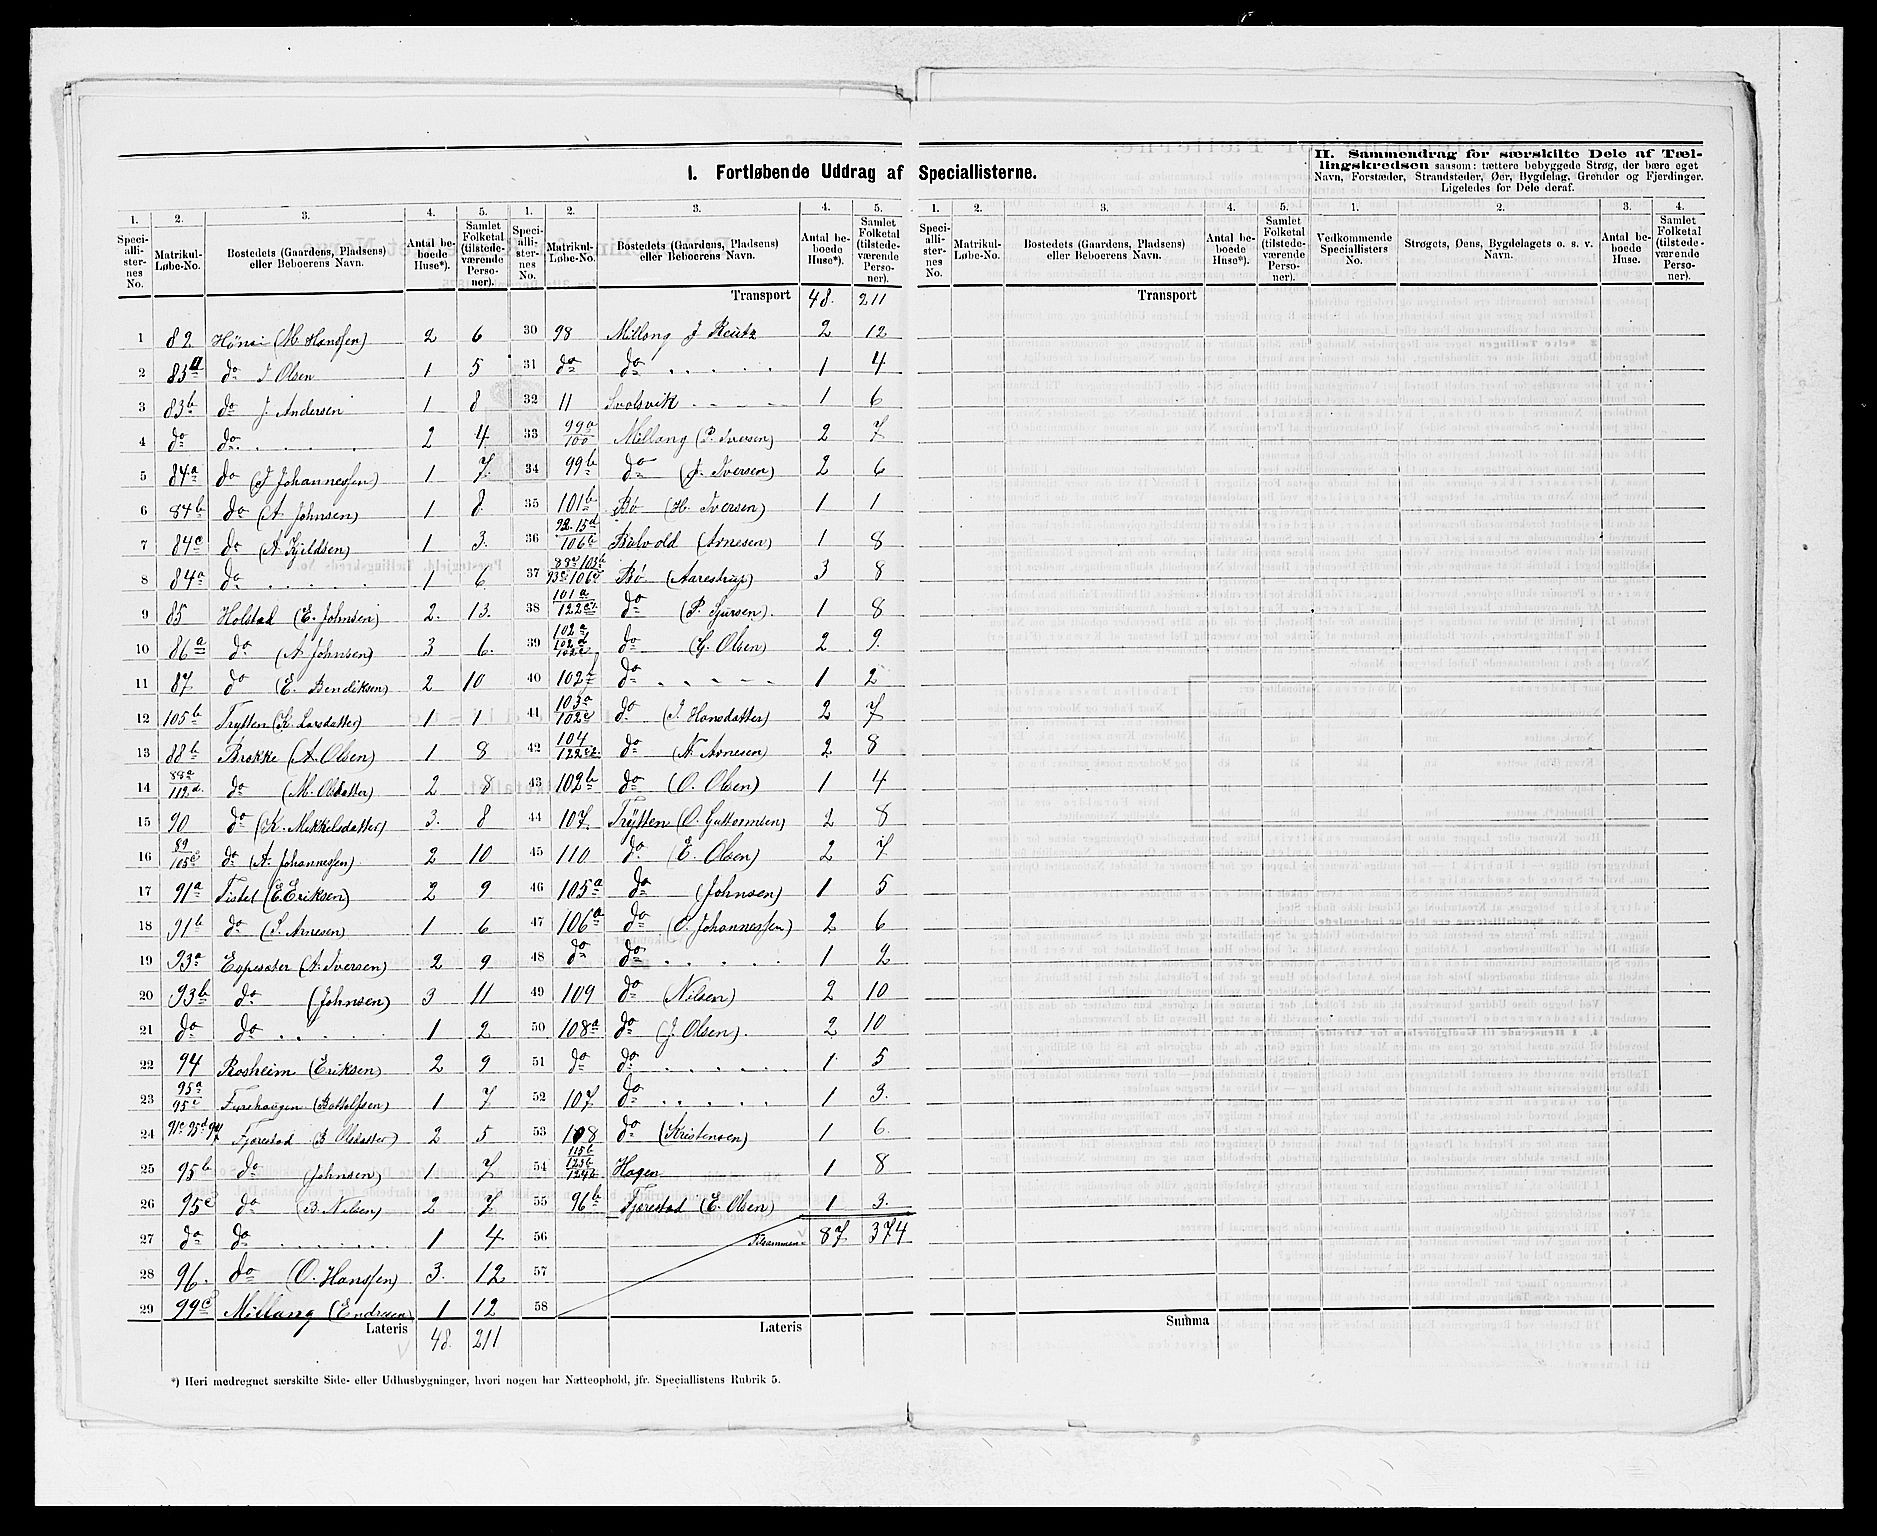 I. Fortløbende Uddrag af Speciallisterne.
II. Sammendrag for særskilte Dele af Tæl-
lingskredsen saasom: tættere bebyggede Strøg, der bære eget
Navn, Forstæder, Strandsteder, Øer, Bygdelag, Grender og Fjerdinger.
Ligeledes for Dele deraf.
1. 2. 3. 4. 5. 1. 2. 3. 4. 5. 1. 2. 3. 4. 5. 1. 2. 3. 4.
Speci-alli-ster-nes No. Matrikul-Løbe-No. Bostedets (Gaardens, Pladsens) eller Beboerens Navn. Antal be-boede Huse*). Samlet Folketal (tilstede-værende Perso-ner).
Speci-alli-ster-nes No. Matrikul-Løbe-No. Bostedets (Gaardens, Pladsens) eller Beboerens Navn. Antal be-boede Huse*). Samlet Folketal (tilstede-værende Perso-ner).
Speci-alli-ster-nes No. Matrikul-Løbe-No. Bostedets (Gaardens, Pladsens) eller Beboerens Navn. Antal be-boede Huse*). Samlet Folketal (tilstede-værende Perso-ner).
Vedkommende Speciallisters No. Strøgets, Øens, Bygdelagets o. s. v. Navn. Antal be-boede Huse. Samlet Folketal (tilstede-værende Perso-ner).
1 82 (M. Hanssen) 2 6
2 83a do J Olsen 1 5
3 83b do J. Andersen 1 8
4 do do 2 4
5 84a do (J Johannessen) 1 7
6 84b do (A. Johnsen) 1 8
7 84c do (A Kjeldsen) 1 3.
8 84a do 1 6
9 85 Holstad (E. Johnsen) 2. 13.
10 86a do (A. Johnsen) 3 6.
11 87 do (E. Bendiksen) 2 10
12 105b Trytten (K. Larsdatter) 1 1
13 88b Brekke (A. Olsen) 1 8
14 88a 112d. do (M. Olsdatter) 2 8
15 90 do (K. Mikkelsdatter) 3. 8
16 89 105c do (A. Johannessen) 2 10
17 91a Tistel (E. Eriksen) 2 9
18 91b do (S. Arnesen) 1 6
19 93a (A. Iversen) 2 9
20 93b do (Johnsen) 3 11
21 do do 1 2
22 94 Rosheim (Eriksen) 2 9
23 95a 95c (Bottolfsen) 1 7
24 Fjærestad B Olsdatter) 2 5
25 95b do (Johnsen) 1 7
26 95c do (B. Nilsen) 2 7
27 do do 1 4
28 96. do (O. Hanssen) 3. 12
29 99c Millang (Endresen) 1 12
Lateris 48. 211
Transport 48. 211
30 98 Millang J Reutz 2 12
31 do do 1 4
32 11 Svolsvik 1 6
33 99a 100 Millang (P. Iversen) 2 7
34 99b do (J. Iversen) 2 6
35 101b Bø (H. Iversen) 1 1
36 92. 15d 106b (Arnesen) 1 8
37 Bø (Aarestrup) 3 8
38 101a do (P. Sjursen). 1 8
39 102a 102d do (G. Olsen) 2 9.
40 102f do 1 2
41 103a 102c do (J. Hansdatter) 2 7
42 104 do (N. Arnesen) 2 8
43 102b do (O. Olsen) 1 4
44 107. Trytten (O. Guttormsen) 2 8
45 110 do (E. Olsen) 2 7
46 105a do (Johnsen) 1 5
47 106a do (O. Johannessen) 2 6
48 do do 1 2
49 109 do (Nilsen) 2 10
50 108a do (J. Olsen). 2 10
51 do do 1 5
52 107. do 1 3.
53 108 do (Kristensen) 1 6.
54 115b 123b 124b Hagen 1 8
55 96b Fjærestad (E. Olsen) 1 3.
56 Tilsammen 87. 374
57
58
Lateris
Transport
Summa
*) Heri medregnet særskilte Side- eller Udhusbygninger, hvori nogen har Natteophold, jfr. Speciallistens Rubrik 5.